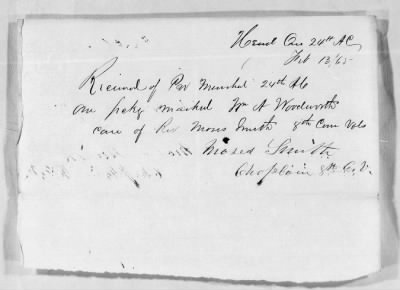 Head Qrs 24th A C
Feb 13/65
Received of Pro Marshal 24th A C
one pckg marked Wm A Woodworth
care of Rev Moses Smith 8th Conn Vols
Moses Smith
Chaplain 8th C. V.